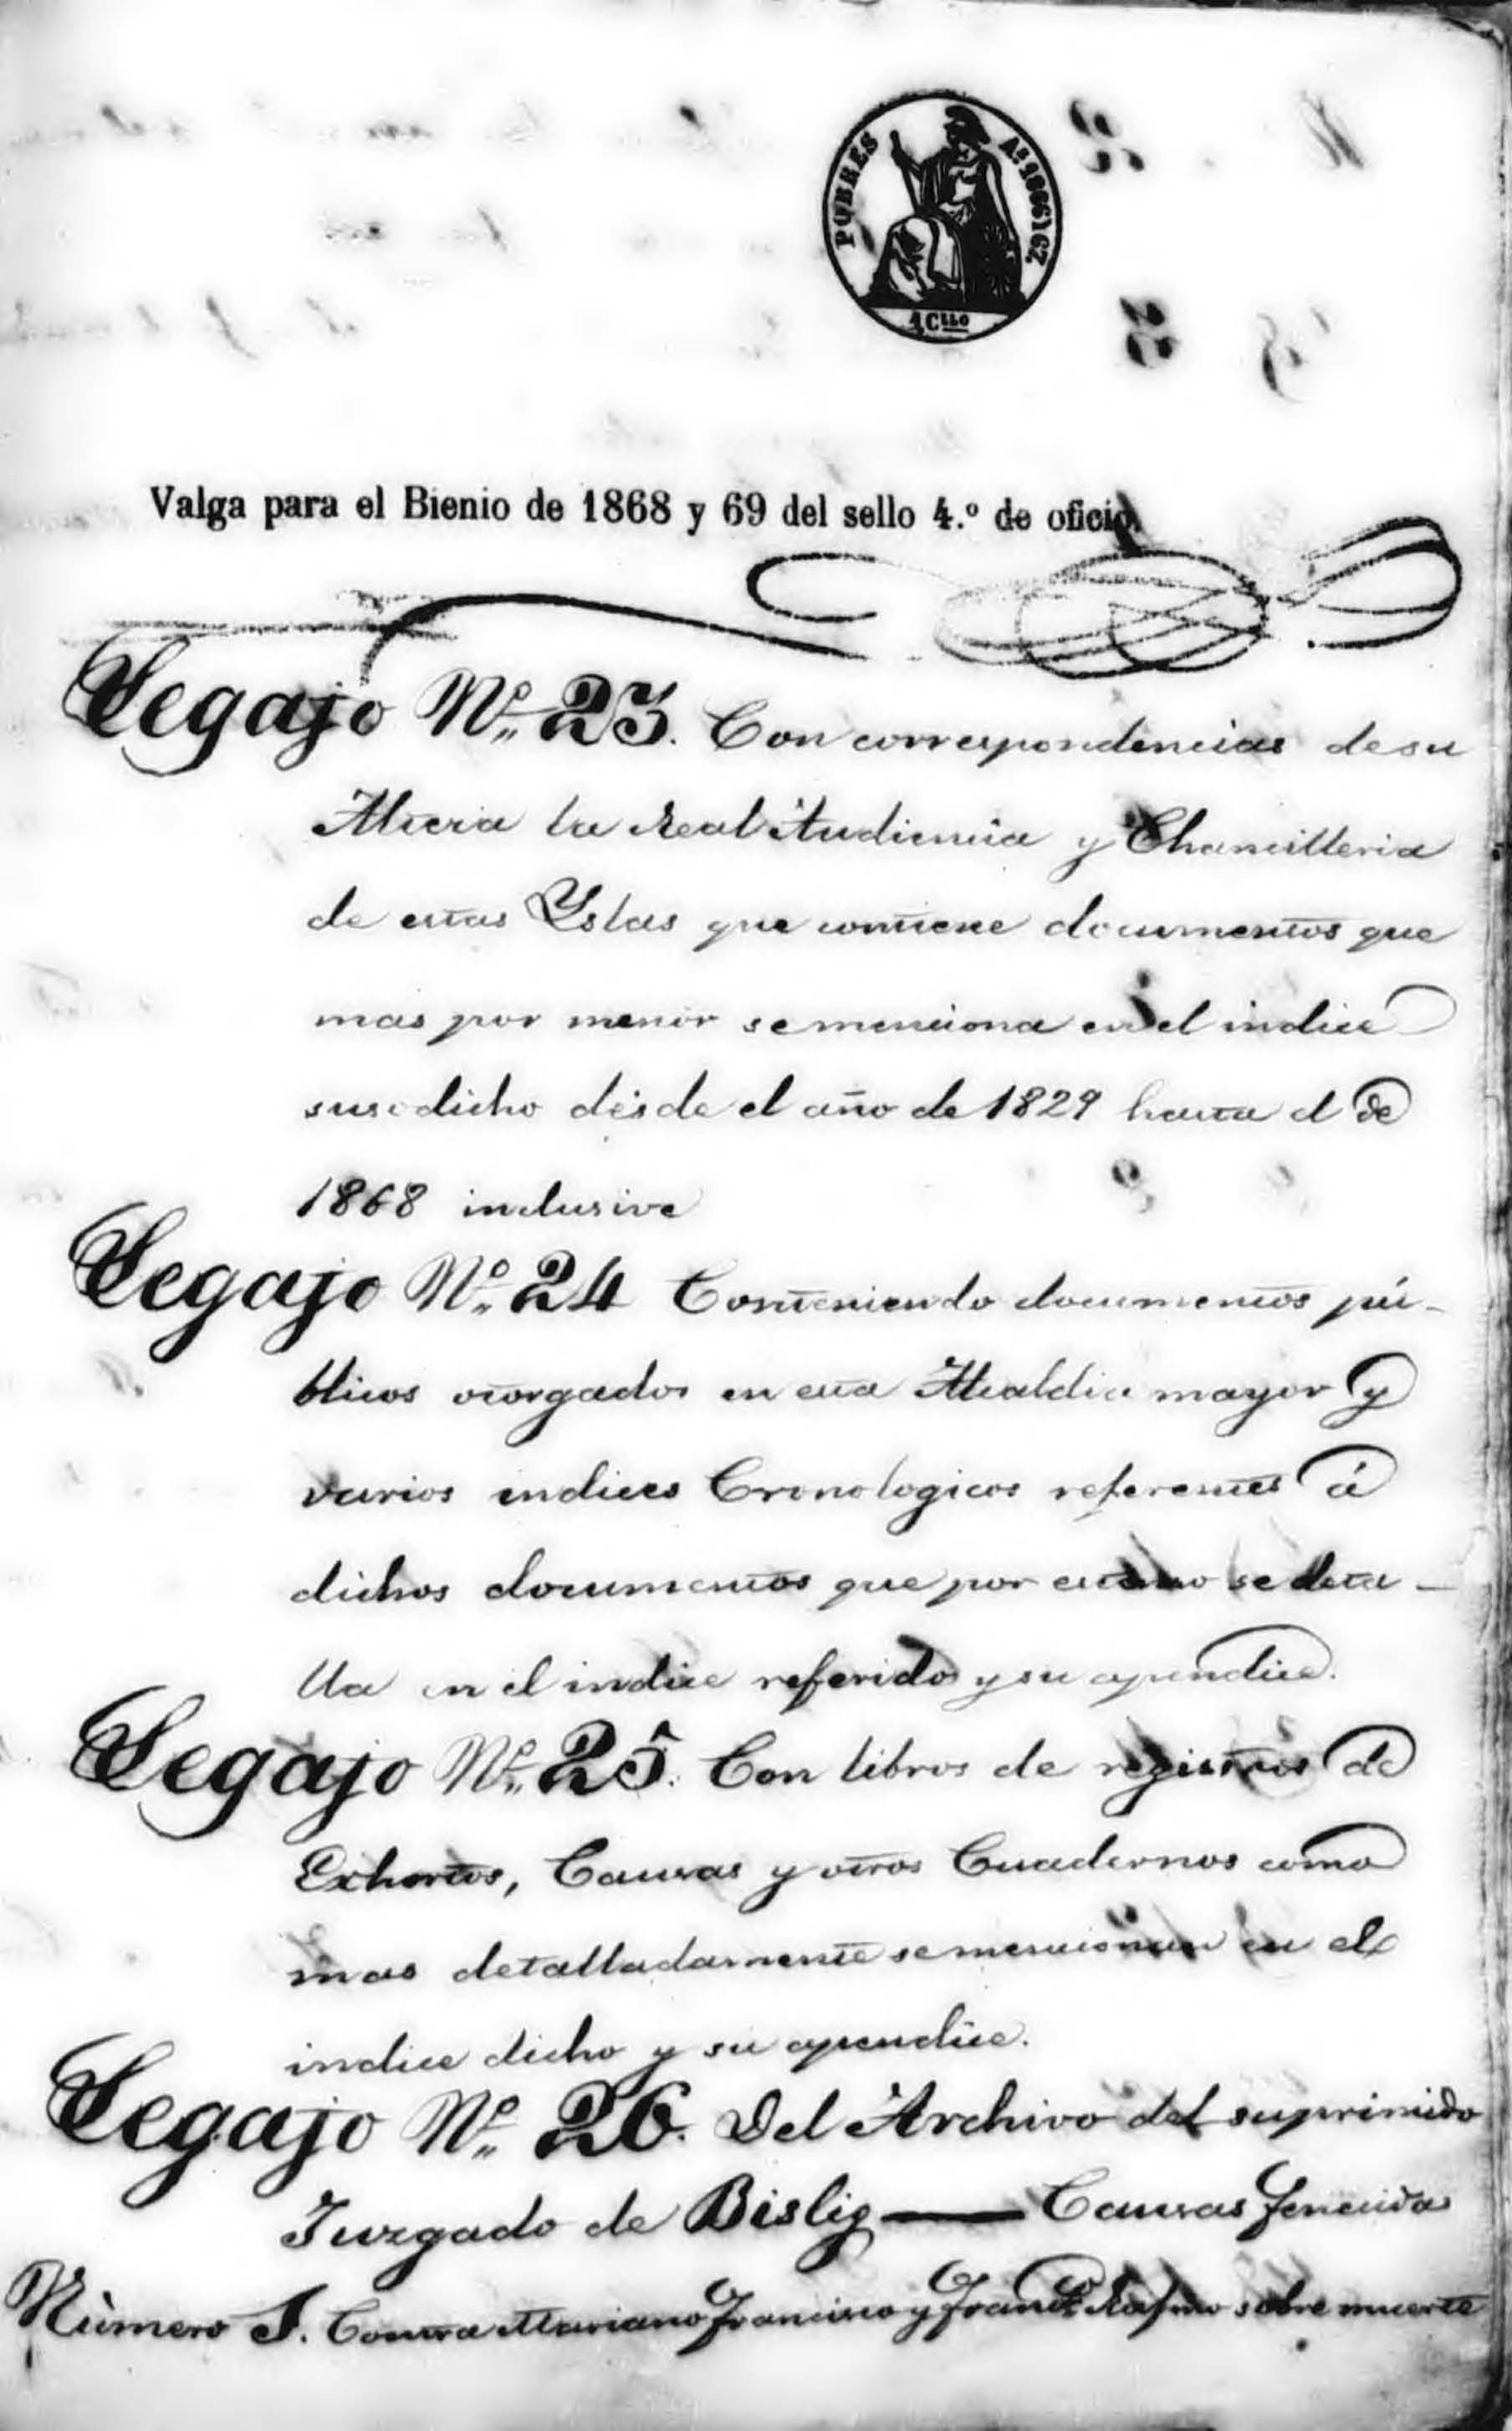 POBRES Aˢ 1866 y 67
4 Cᵗᵗᵒ
Valga para el Bienio de 1868 y 69 del sello 4.º de oficio.
Legajo Nº 23. Con correspondencias de su
Alteza la Real Audiencia y Chancilleria
de estas Yslas que contiene documentos que
mas por menor se menciona en el indice
susodicho desde el año de 1829 hasta el de
1868 inclusive
Legajo Nº 24 Conteniendo documentos pú-
blicos otorgados en esta Alcaldia mayor y
varios indices Cronologicos referentes á
dichos documentos que por estenso se deta-
lla en el indice referido y su apendice.
Legajo Nº 25. Con libros de registros de
Exhortos, Causas y otros Cuadernos como
mas detalladamente se mencionan en el
indice dicho y su apendice.
Legajo Nº 26. Del Archivo del suprimido
Juzgado de Bislig — Causas fenecidas
Nùmero 1. Contra Mariano Francisco y sobre muerte